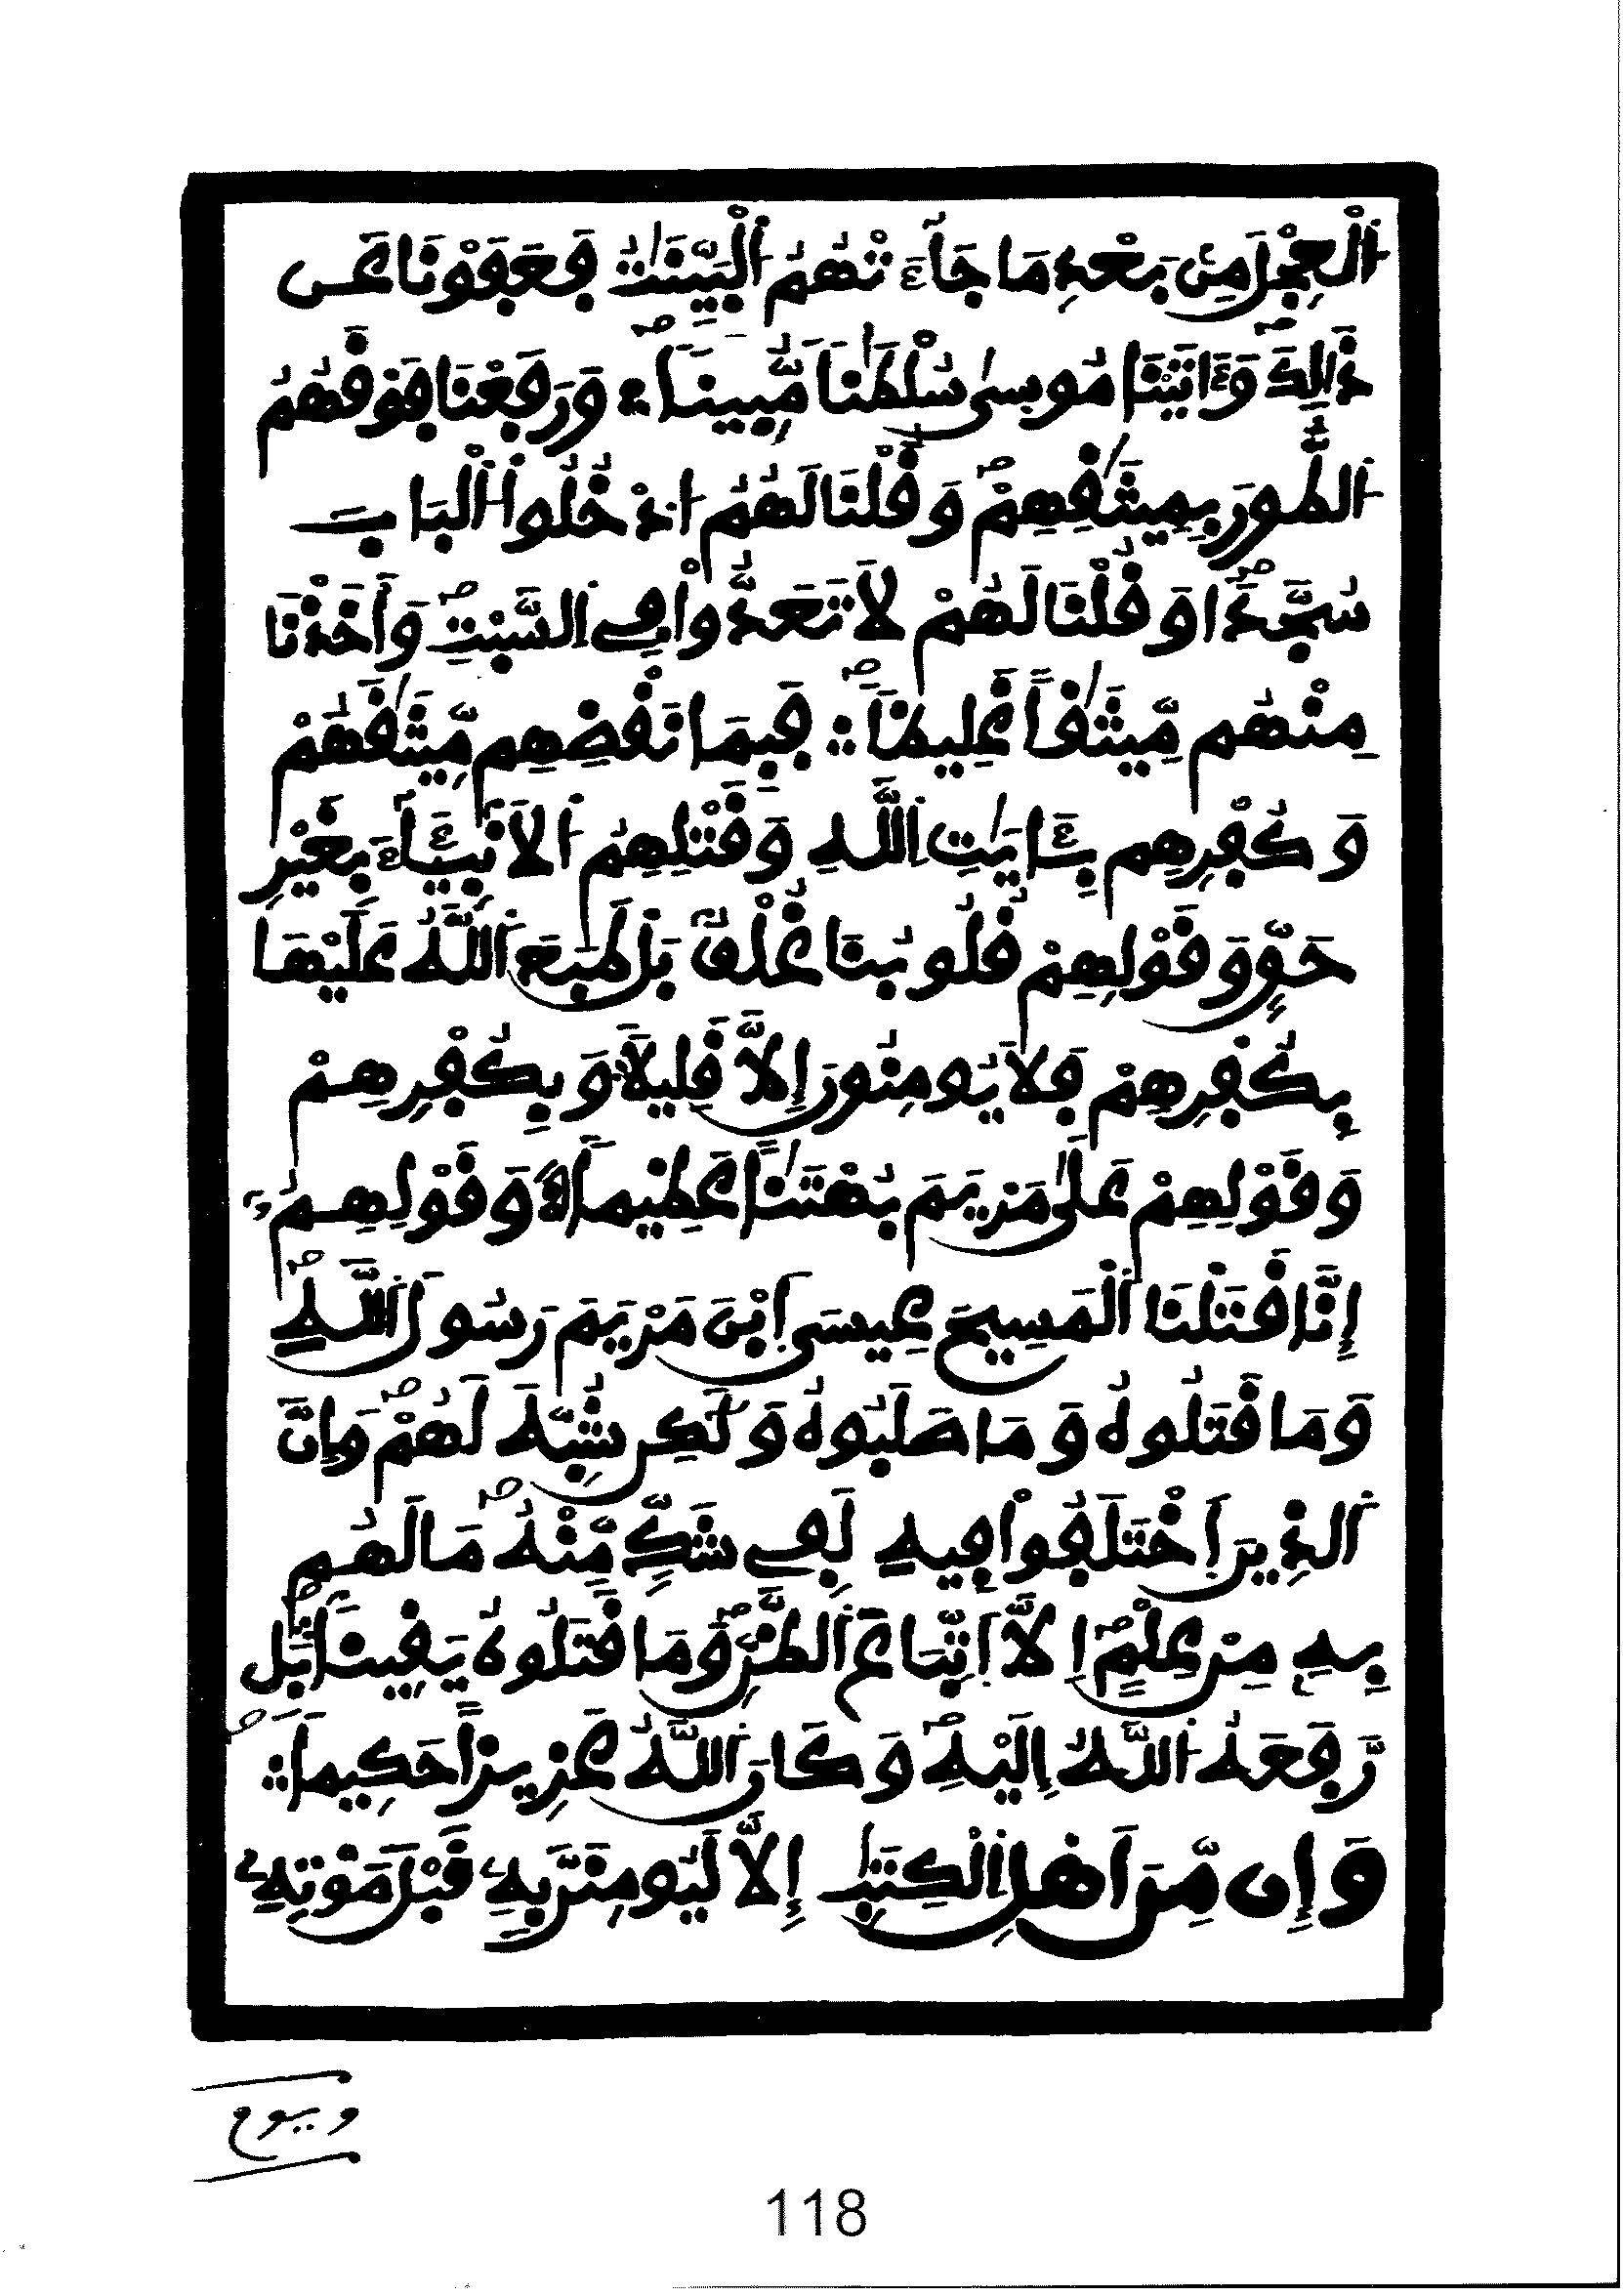 اَ۬لْعِجْلَ مِنۢ بَعْدِ مَا جَآءَتْهُمُ اُ۬لْبَيِّنَٰتُ فَعَفَوْنَا عَن
ذَٰلِكَ وَءَاتَيْنَا مُوسَىٰ سُلْطَٰناٗ مُّبِيناٗ وَرَفَعْنَا فَوْقَهُمُ
اُ۬لطُّورَ بِمِيثَٰقِهِمْ وَقُلْنَا لَهُمُ اُ۟دْخُلُواْ اُ۬لْبَابَ
سُجَّداٗ وَقُلْنَا لَهُمْ لَا تَعَدُّواْ فِے اِ۬لسَّبْتِ وَأَخَذْنَا
مِنْهُم مِّيثَٰقاً غَلِيظاٗ فَبِمَا نَقْضِهِم مِّيثَٰقَهُمْ
وَكُفْرِهِم بِـَٔايَٰتِ اِ۬للَّهِ وَقَتْلِهِمُ اُ۬لَانۢبِيَآءَ بِغَيْرِ
حَقّٖ وَقَوْلِهِمْ قُلُوبُنَا غُلْفُۢ بَلْ طَبَعَ اَ۬للَّهُ عَلَيْهَا
بِكُفْرِهِمْ فَلَا يُومِنُونَ إِلَّا قَلِيلاٗ وَبِكُفْرِهِمْ
وَقَوْلِهِمْ عَلَىٰ مَرْيَمَ بُهْتَٰناً عَظِيماٗ وَقَوْلِهِمُۥ
إِنَّا قَتَلْنَا اَ۬لْمَسِيحَ عِيسَى اَ۪بْنَ مَرْيَمَ رَسُولَ اَ۬للَّهِ
وَمَا قَتَلُوهُ وَمَا صَلَبُوهُ وَلَٰكِن شُبِّهَ لَهُمْ وَإِنَّ
اَ۬لذِينَ اَ۪خْتَلَفُواْ فِيهِ لَفِے شَكّٖ مِّنْهُ مَا لَهُم
بِهِۦ مِنْ عِلْمٍ اِلَّا اَ۪تِّبَاعَ اَ۬لظَّنِّ وَمَا قَتَلُوهُ يَقِيناَۢ بَل
رَّفَعَهُ اُ۬للَّهُ إِلَيْهِ وَكَانَ اَ۬للَّهُ عَزِيزاً حَكِيماٗ
وَإِن مِّنَ اَهْلِ اِ۬لْكِتَٰبِ إِلَّا لَيُومِنَنَّ بِهِۦ قَبْلَ مَوْتِهِۦ
ويوم
118